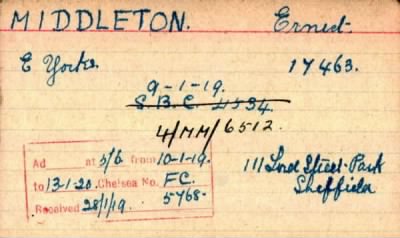 MIDDLETON. Ernest.
E Yorks. 17463.
9-1-19.
S.B.C. 4534.
4/MM/6512.
Ad at 5/6 from 10-1-19.
to 13-1-20. Chelsea No. FC.
5768.
Received 28/1/19.
111 Lord Street. Park
Sheffield